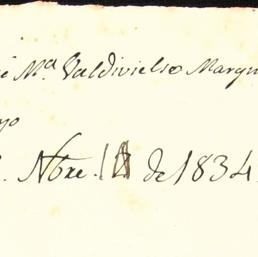 é Mª Valdivielso Marqu
yo
. Nbre. 18 de 1834.